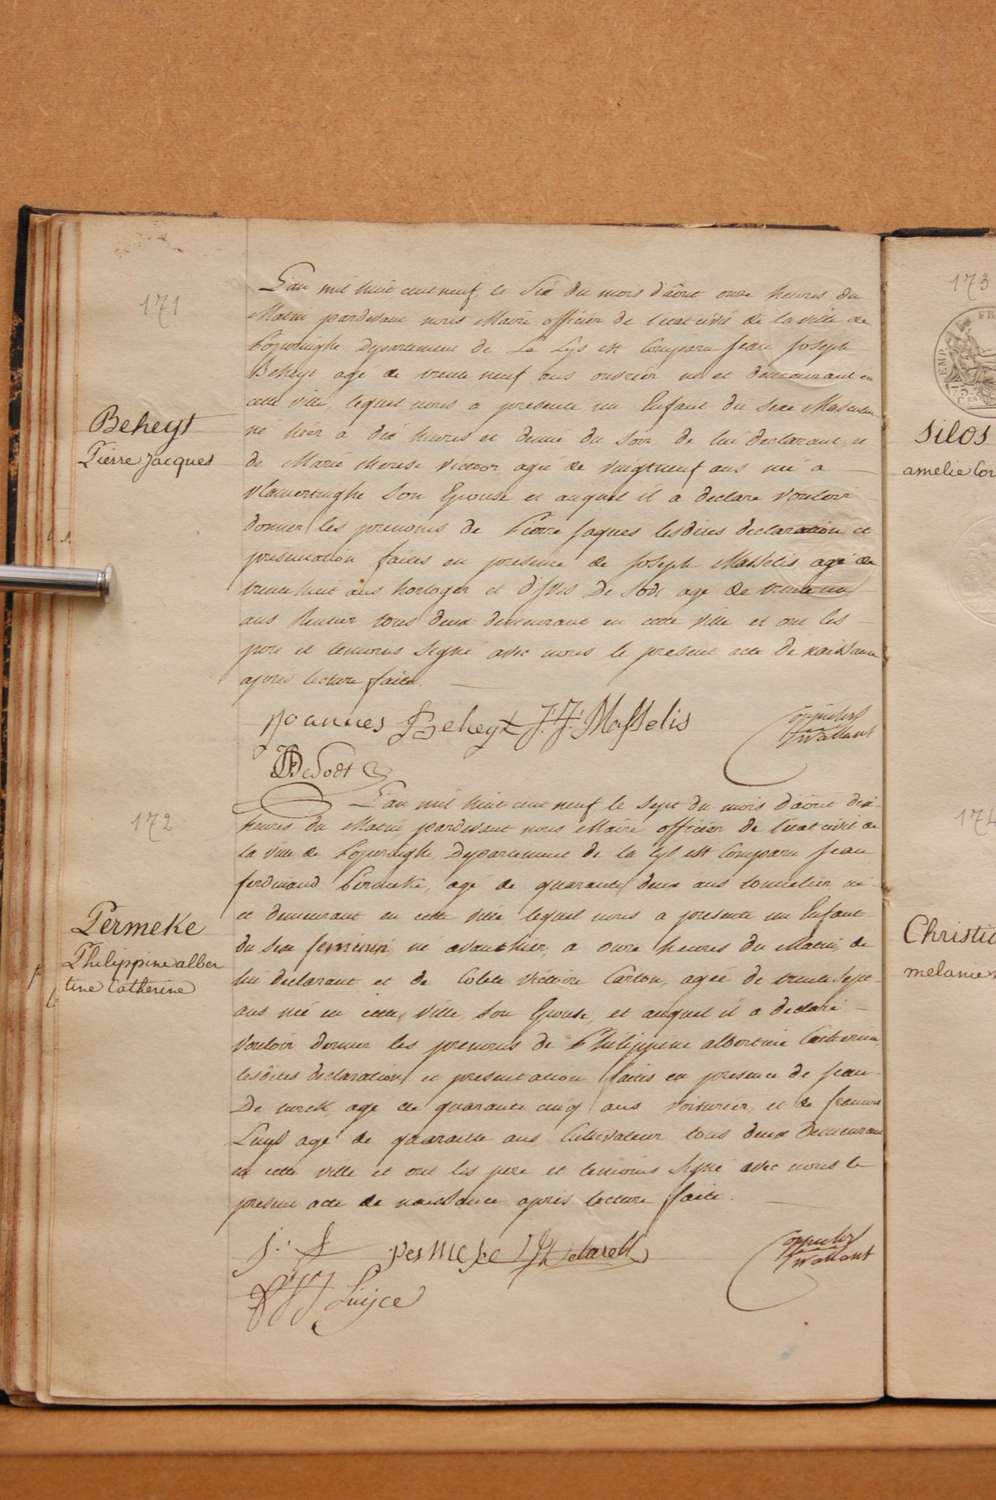 171
Beheyt
Pierre Jacques
L'an mil huit cent neuf, le Six du mois d'août onze heures du
Matin pardevant nous Maire officier de l'etat civil de la ville de
Poperinghe Departement de La Lys est Comparu jean joseph
Beheyt agé de trente neuf ans ouvrier né et demeurant en
cette ville, lequel nous a presenté un Enfant du Sexe Masculin
né hier à dix heures et demie du Soir de lui declarant et
de Marie therese Victoor agée de vingtneuf ans née a
Vlamertinghe Son Epouse et auquel il a declaré vouloir
donner les prenoms de Pierre Jaques lesdites declaration et
presentation faites en presence de joseph Masselis agé de
trente huit ans horloger et De Sodt agé de
ans Rentier tous deux demeurant en cette ville et ont les
pere et temoins Signé avec nous le present acte de naissance
après lecture faite.
joannes Beheyt J: J: Masselis
DeSodt
172
Permeke
Philippine alber
tine Catherine
L'an mil huit cent neuf le Sept du mois d'août dix
heures du Matin pardevant nous Maire officier de l'etat civil de
la ville de Poperinghe Departement de la Lys est Comparu jean
ferdinand Permeke, agé de quarante deux ans tonnelier né
et demeurant en cette ville lequel nous a presenté un Enfant
du Sexe feminin né avant hier, a onze heures du Matin, de
lui declarant et de Colete Victoire Carton, agée de trente Sept
ans née en cette ville, Son Epouse, et auquel il a declaré
vouloir donner les prenoms de Philippine albertine Catherine
lesdites declaration et presentation faites en presence de jean
De turck agé de quarante cinq ans voiturier, et de francois
Luys agé de quarante ans Cultivateur tous deux Demeurant
en cette ville et ont les pere et temoins Signé avec nous le
present acte de naissance après lecture faite.
j: f permeke
173
FR
EMP
Silos
amelie Cor
174
Christi
melanie